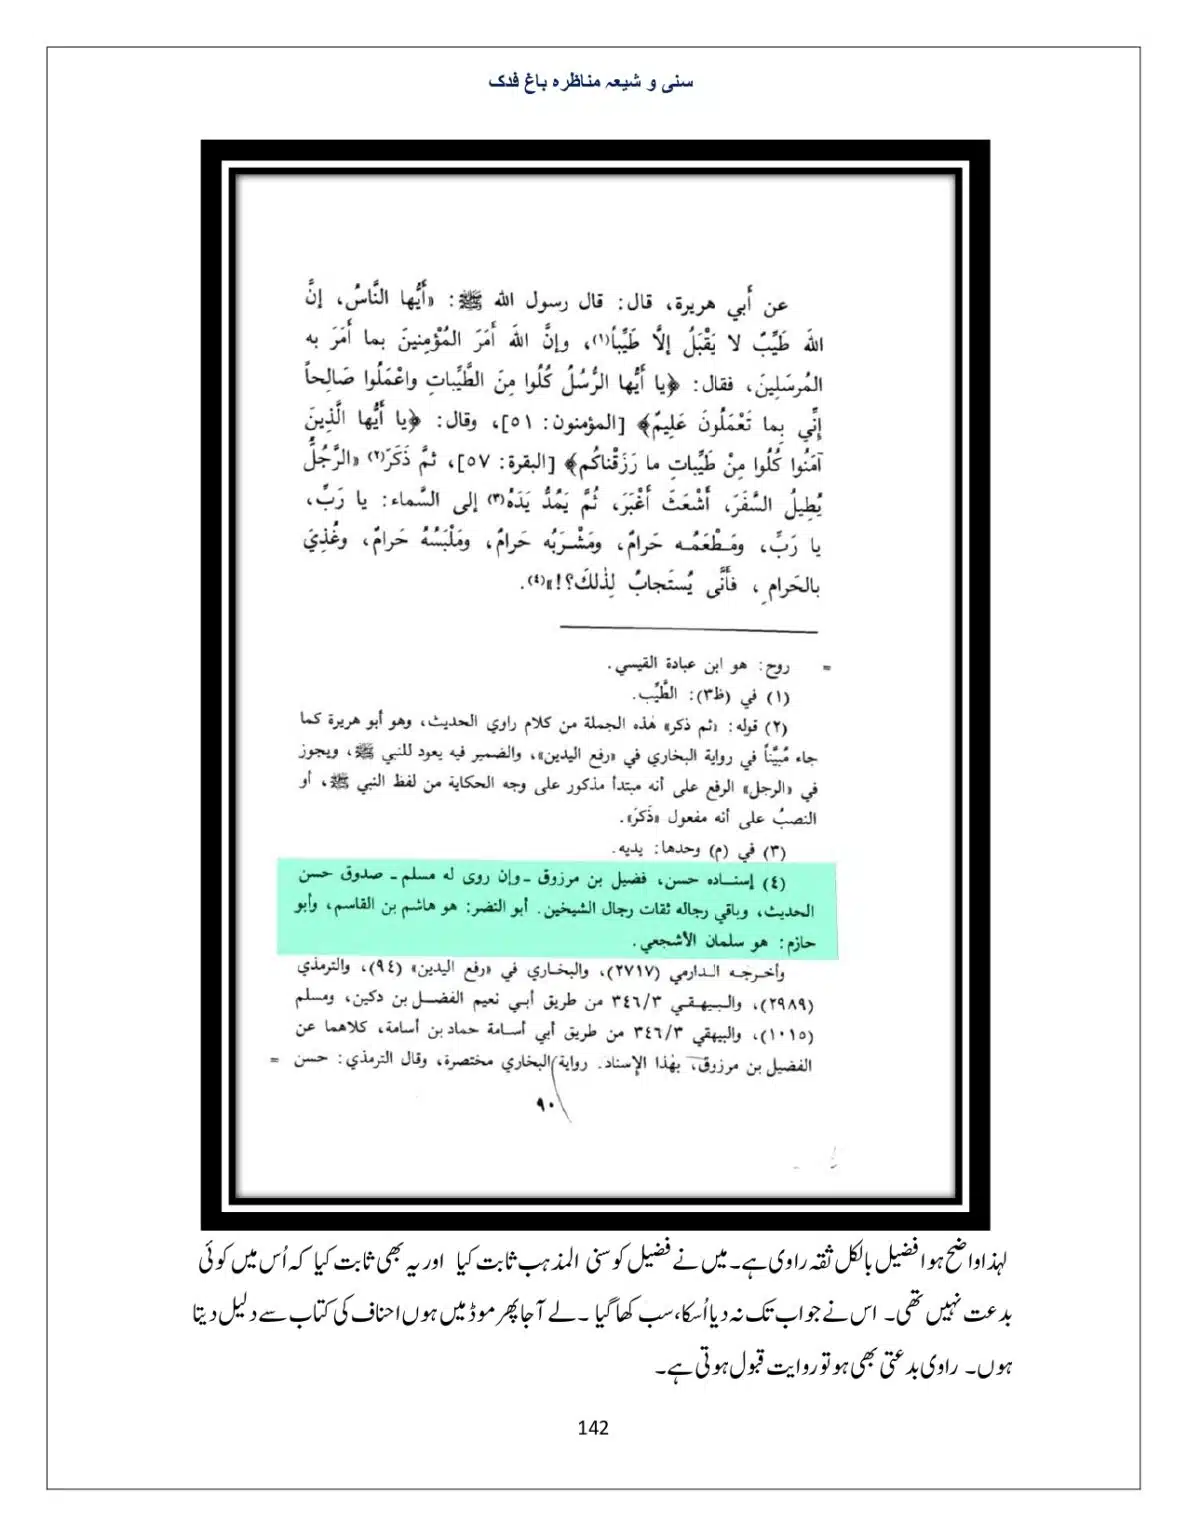 سنی و شیعہ مناظرہ باغ فدک
عن أبي هريرة، قال: قال رسول الله ﷺ: «أَيُّها النَّاسُ، إنَّ
اللهَ طَيِّبٌ لا يَقْبَلُ إلَّا طَيِّباً(١)، وإنَّ اللهَ أَمَرَ المُؤْمِنينَ بما أَمَرَ به
المُرسَلِينَ، فقال: ﴿يا أَيُّها الرُّسُلُ كُلُوا مِنَ الطَّيِّباتِ واعْمَلُوا صَالِحاً
إنِّي بِما تَعْمَلُونَ عَلِيمٌ﴾ [المؤمنون: ٥١]، وقال: ﴿يا أَيُّها الَّذِينَ
آمَنُوا كُلُوا مِنْ طَيِّباتِ ما رَزَقْناكُم﴾ [البقرة: ٥٧]، ثمَّ ذَكَرَ(٢) «الرَّجُلُ
يُطِيلُ السَّفَرَ، أَشْعَثَ أَغْبَرَ، ثُمَّ يَمُدُّ يَدَهُ(٣) إلى السَّماء: يا رَبِّ،
يا رَبِّ، ومَطْعَمُه حَرامٌ، ومَشْرَبُه حَرامٌ، ومَلْبَسُهُ حَرامٌ، وغُذِيَ
بالحَرامِ، فأَنَّى يُستَجابُ لِذٰلكَ؟!»(٤).
= روح: هو ابن عبادة القيسي.
(١) في (ظ٣): الطَّيِّب.
(٢) قوله: «ثم ذكر» هذه الجملة من كلام راوي الحديث، وهو أبو هريرة كما
جاء مُبيَّناً في رواية البخاري في «رفع اليدين»، والضمير فيه يعود للنبي ﷺ، ويجوز
في «الرجل» الرفع على أنه مبتدأ مذكور على وجه الحكاية من لفظ النبي ﷺ، أو
النصبُ على أنه مفعول «ذَكَرَ».
(٣) في (م) وحدها: يديه.
(٤) إسناده حسن، فضيل بن مرزوق - وإن روى له مسلم - صدوق حسن
الحديث، وباقي رجاله ثقات رجال الشيخين. أبو النضر: هو هاشم بن القاسم، وأبو
حازم: هو سلمان الأشجعي.
وأخرجه الدارمي (٢٧١٧)، والبخاري في «رفع اليدين» (٩٤)، والترمذي
(٢٩٨٩)، والبيهقي ٣٤٦/٣ من طريق أبي نعيم الفضل بن دكين، ومسلم
(١٠١٥)، والبيهقي ٣٤٦/٣ من طريق أبي أسامة حماد بن أسامة، كلاهما عن
الفضيل بن مرزوق، بهٰذا الإسناد. رواية البخاري مختصرة، وقال الترمذي: حسن =
٩٠
لہذا واضح ہوا فضیل بالکل ثقہ راوی ہے۔ میں نے فضیل کو سنی المذہب ثابت کیا اور یہ بھی ثابت کیا کہ اُس میں کوئی
بدعت نہیں تھی۔ اس نے جواب تک نہ دیا اُسکا، سب کھا گیا ۔ لے آجا پھر موڈ میں ہوں احناف کی کتاب سے دلیل دیتا
ہوں۔ راوی بدعتی بھی ہو تو روایت قبول ہوتی ہے۔
142